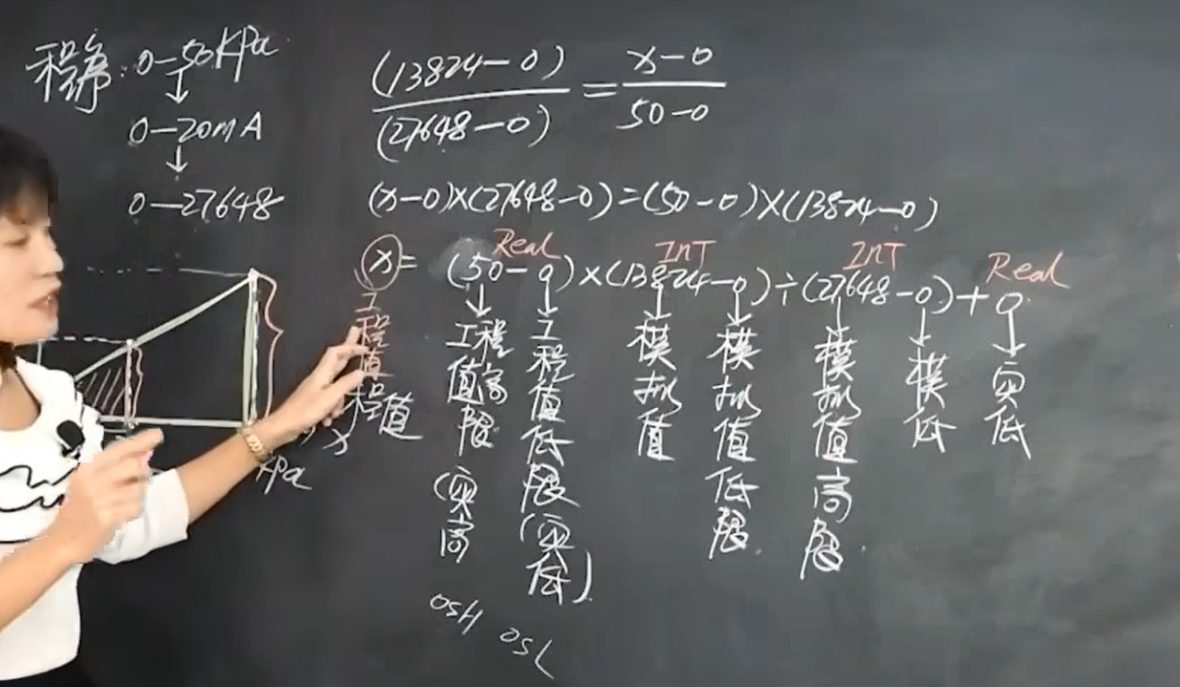 程序: 0-50KPa
↓
0-20mA
↓
0-27648
(13824-0)/(27648-0) = (x-0)/(50-0)
(x-0)×(27648-0)=(50-0)×(13824-0)
Real InT InT Real
x= (50-0)×(13824-0)÷(27648-0)+0
工程值
程值
工程值高限(实高
工程值低限(实低)
模拟值
模拟值低限
模拟值高限
模低
实低
x
KPa
OSH OSL